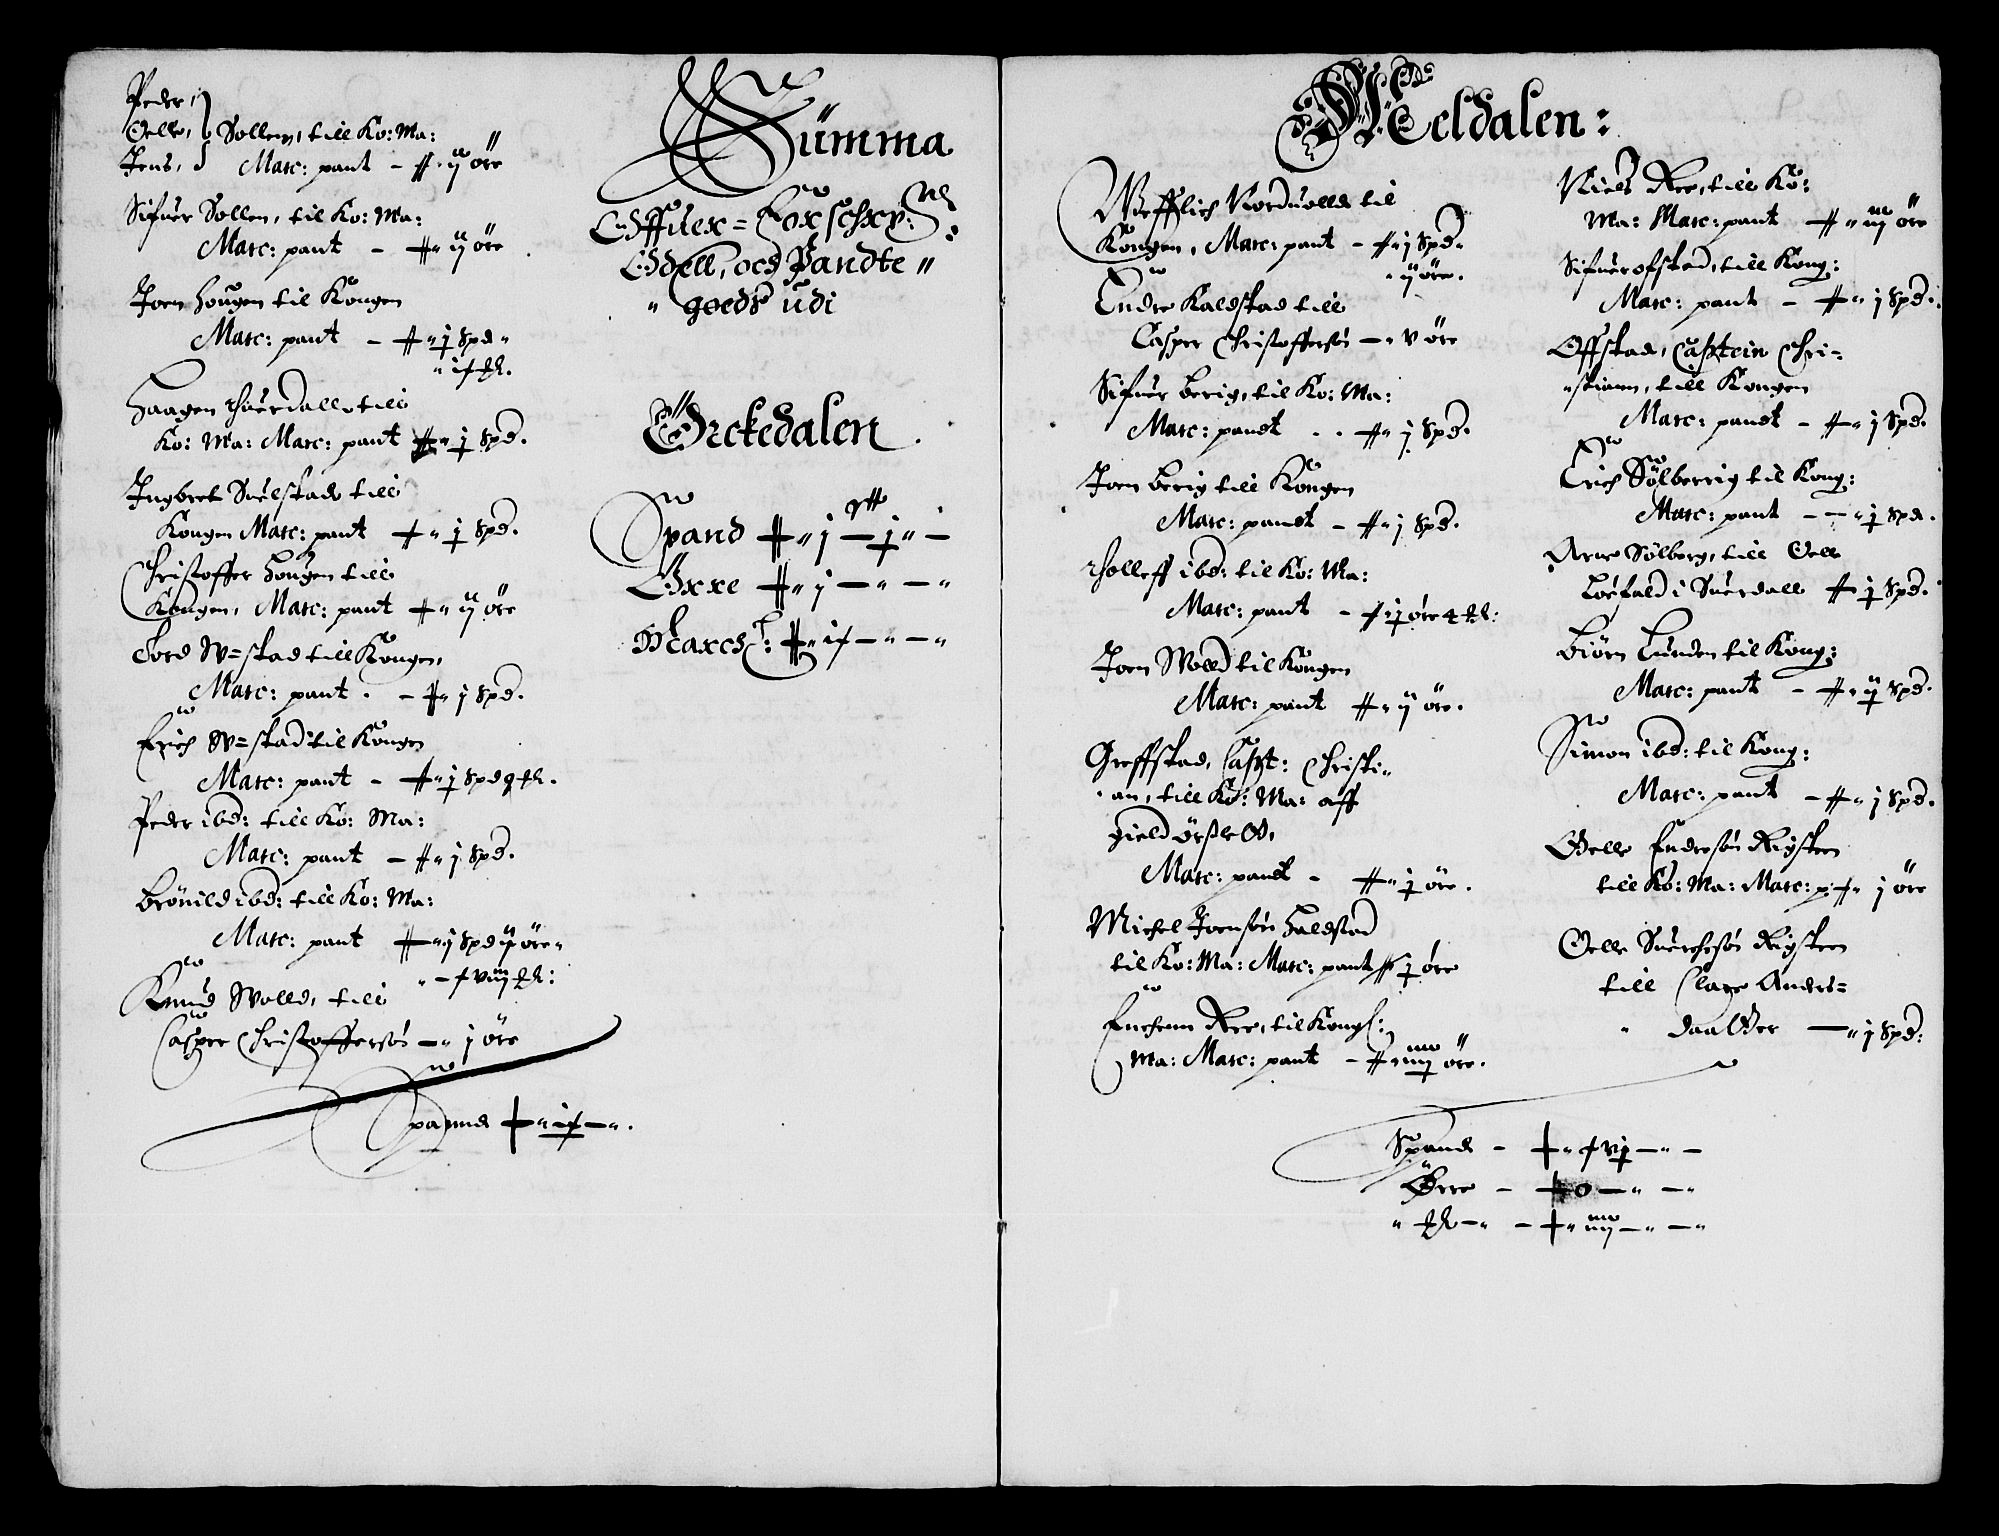 Peder,
Oelle, Sollem, till Ko: Ma:
Jens, Marc: pant - # ij öre
Sifuer Sollem, til Ko: Ma:
Marc: pant - # ij öre
Joen Hougen til Kongen
Marc: pant - # " j Spd "
Haagen Suerdall, till
Ko: Ma: Marc: pant # " j Spd.
Ingbret Suelstad till
Kongen Marc: pant # " j Spd.
Christoffer Hougen till
Kongen, Marc: pant # " ij öre
Tord W=stad till Kongen,
Marc: pant . - # " j Spd.
Erich W=stad til Kongen
Marc: pant - # " j Spd
Peder ibd: till Ko: Ma:
Marc: pant - # " j Spd.
Brönild ibd: till Ko: Ma:
Marc: pant # " j Spd ij öre "
Knud Wolld, till
Casper Christoffersön - " j öre
Spannd
Summa
Offuer = Forschr:ne
Odell, och Pandte "
" goeds udi
Örckedalen .
Spand # " j
Öxre # " j - " - "
Marchl:
Meldalen:
Wefflich Norduolld til
Kongen, Marc: pant - # " j Spd "
" ij öre.
Endre Kaldstad till
Casper Christoffersön - " v öre
Sifuer Berig, til Ko: Ma:
Marc: pandt . . # " j Spd.
Joen Berig till Kongen
Marc: pandt - # " j Spd.
Tholleff ibd: til Ko: Ma:
Marc: pant
Joen Wolld til Kongen
Marc: pant # " ij öre.
Greffstad, Capt: Christi=
an, till Ko: Ma: aff
Marc: pandt - # " j öre.
Michel Joensön Haldstad
til Ko: Ma: Marc: pant # j öre
Enchenn Ree, til Kongl:
Ma: Marc: pant - # " iiij öre.
Spand -
Örre - # 0 - " - "
Niels Ree, till Ko:
Ma: Marc: pant # " iij öre
Sifuer ofstad, till Kong:
Marc: pant - # " j Spd.
Offstad, Captein Chri=
"stiann, till Kongen
Marc: pandt - # " j Spd.
Erich Sölberrig til Kong:
Marc: pant - - " j Spd.
Arne Sölberg, till Oelle
Löefald i Suerdall # j Spd.
Biörn Lunden til Kong:
Marc: pant - # " ij Spd.
Simon ibd: til Kong:
Marc: pant - # " j Spd.
Oelle Endresön Rigsteen
till Ko: Ma: Marc: p # " j öre
Oelle Suerchesön Rigsteen
till Clare Anders=
daatter - " j Spd: